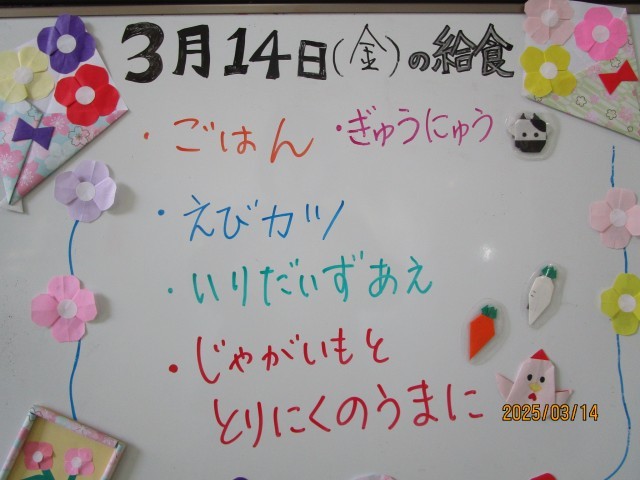 3月14日(金)の給食
・ごはん ・ぎゅうにゅう
・えびカツ
・いりだいずあえ
・じゃがいもと
とりにくのうまに
2025/03/14